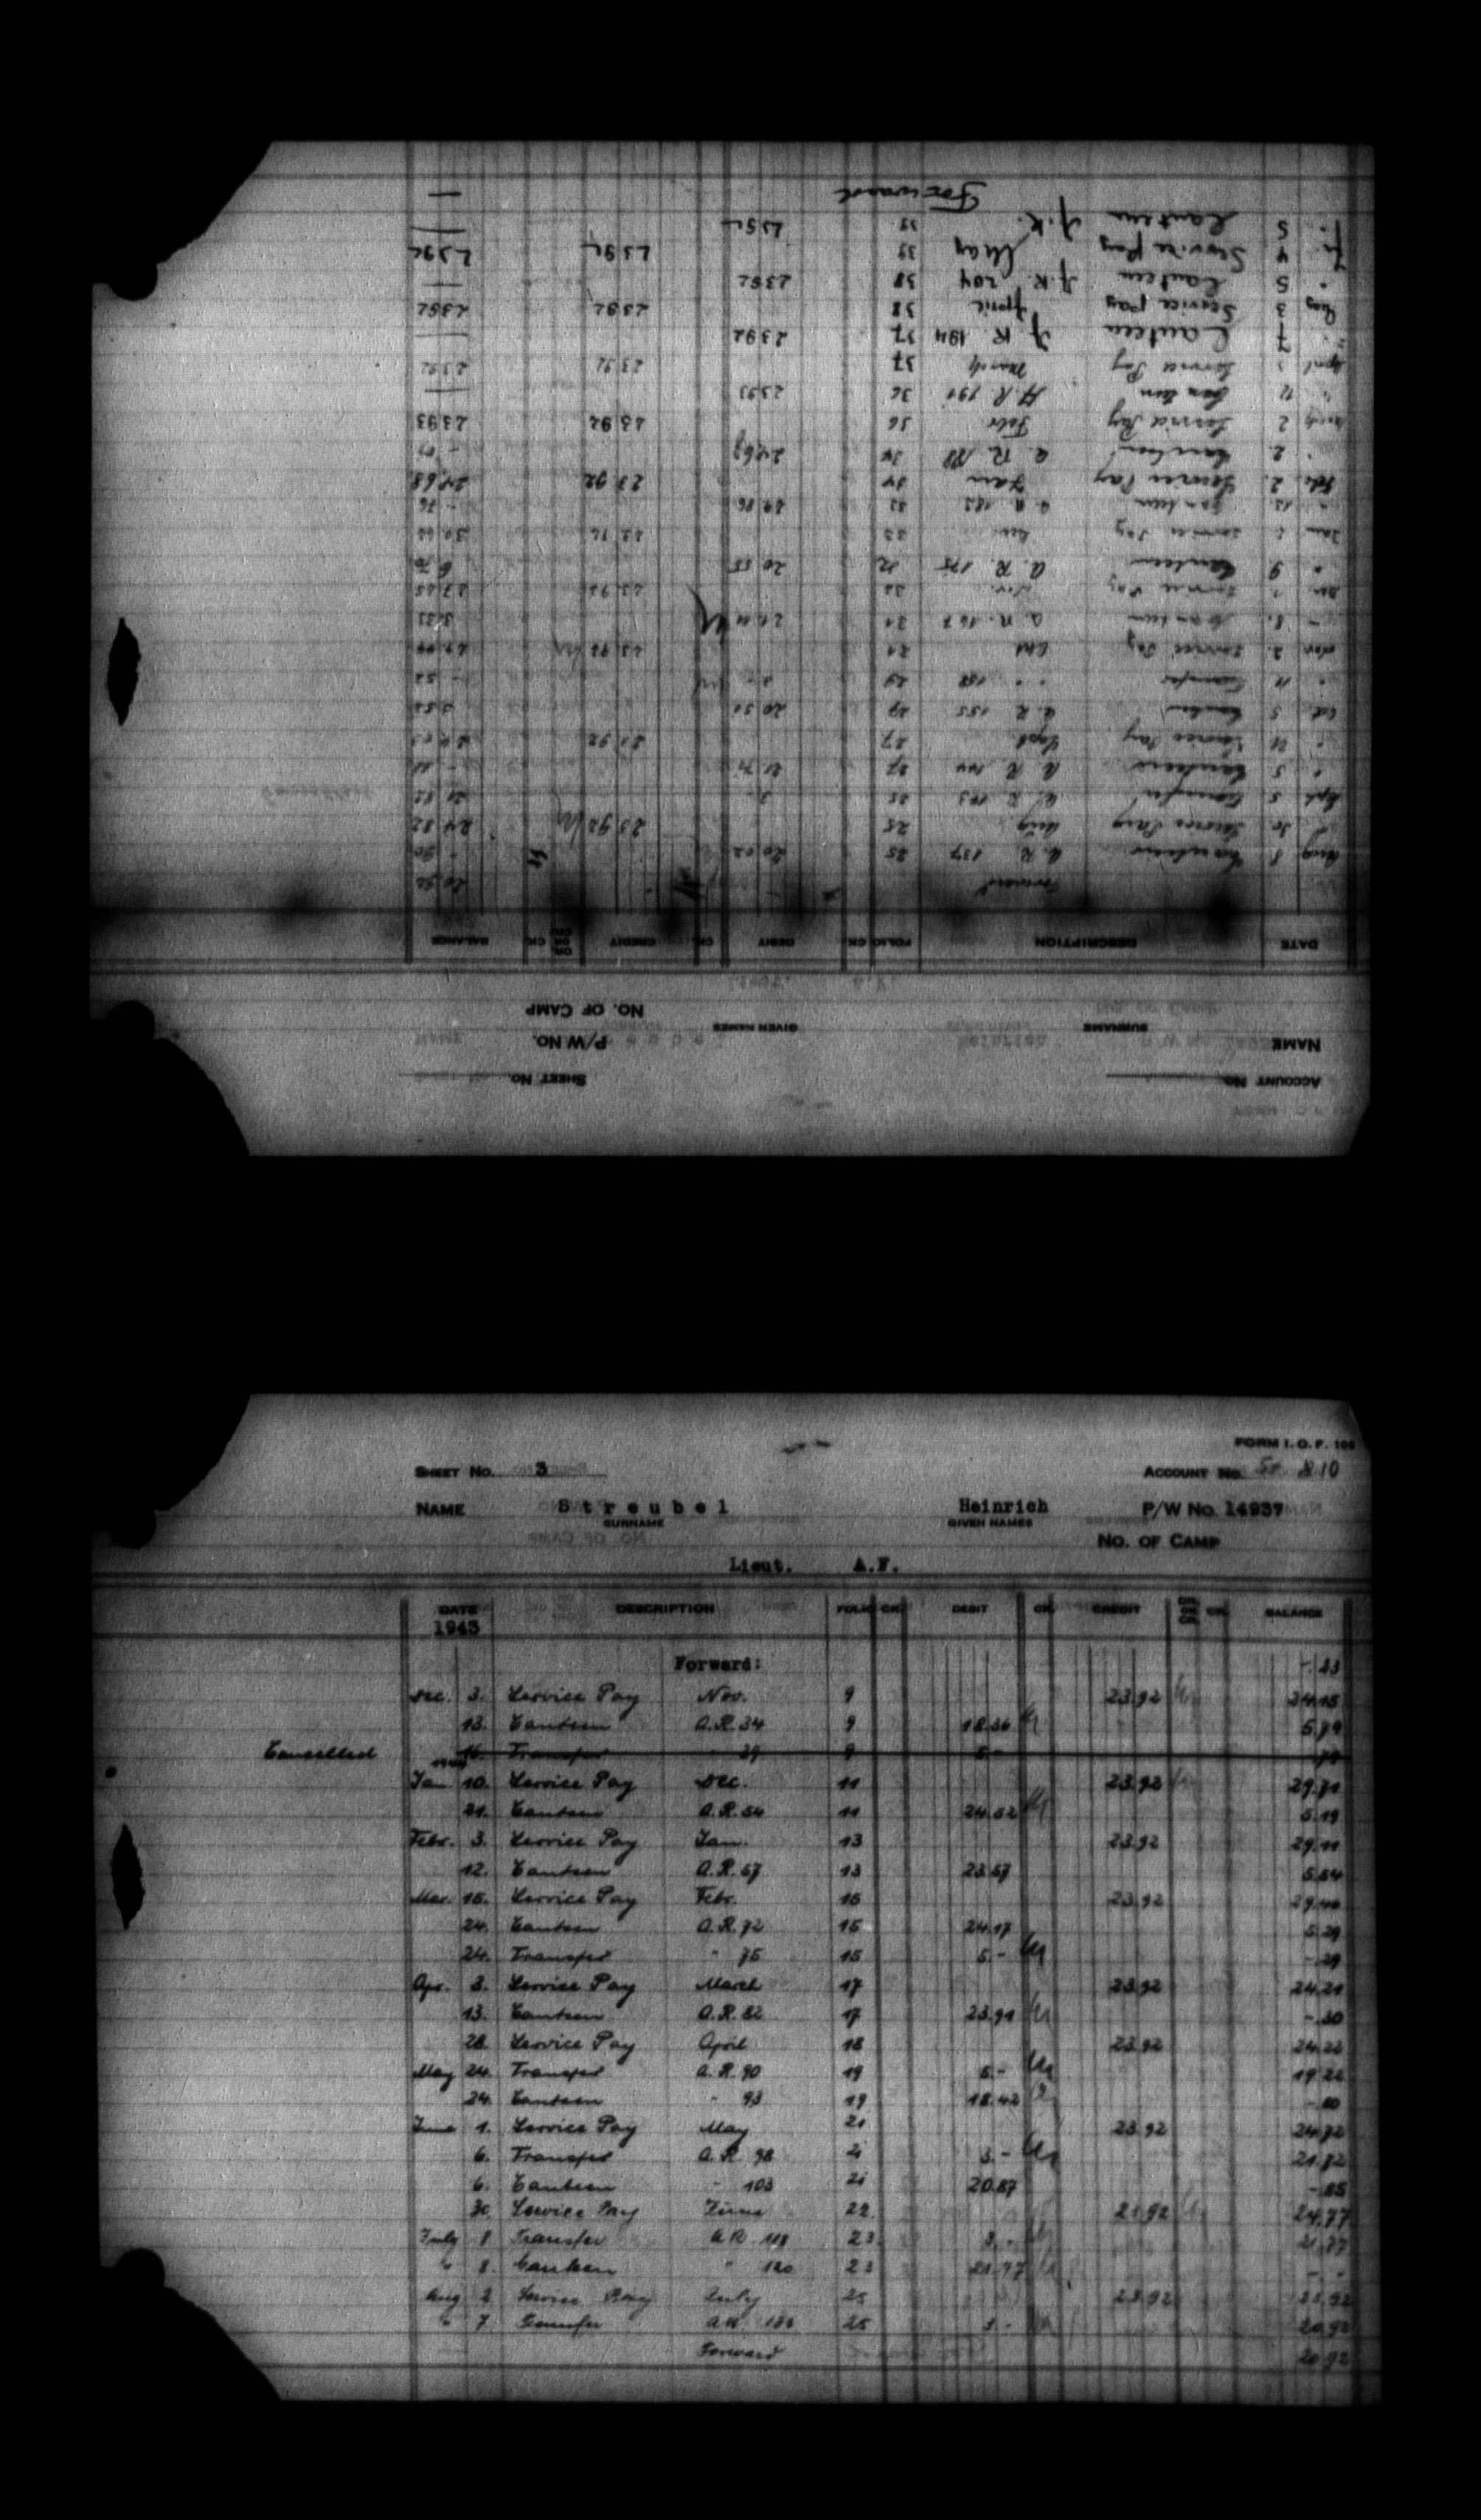 FORM I.O.F. 106
SHEET NO. 3 ACCOUNT NO. 810
NAME Streubel Heinrich P/W NO. 14937
SURNAME GIVEN NAMES
NO. OF CAMP
Lieut. A.F.
DATE DESCRIPTION FOLIO CK. DEBIT CK. CREDIT CK. BALANCE
1943
Forward: -.23
Dec. 3. Service Pay Nov. 9 23.92 24.15
13. Canteen A.R. 34 9 18.36 5.79
Cancelled 16. Transfer 39 9 5.- .79
Jan 10. Service Pay Dec. 11 23.92 29.71
21. Canteen A.R. 54 11 24.52 5.19
Febr. 3. Service Pay Jan. 13 23.92 29.11
12. Canteen A.R. 67 13 23.57 5.54
Mar. 15. Service Pay Febr. 15 23.92 29.46
24. Canteen A.R. 72 15 24.17 5.29
24. Transfer " 75 15 5.- -.29
Apr. 3. Service Pay March 17 23.92 24.21
13. Canteen A.R. 82 17 23.91 -.30
28. Service Pay April 18 23.92 24.22
May 24. Transfer A.R. 90 19 5.- 19.22
24. Canteen " 93 19 18.42 -.80
June 1. Service Pay May 21 23.92 24.72
6. Transfer A.R. 98 21 3.- 21.72
6. Canteen " 103 21 20.87 -.85
30. Service Pay June 22. 23.92 24.77
July 8 Transfer A.R. 118 23. 3.- 21.77
" 8. Canteen " 120 23 21.77 -.-
Aug 2 Service Pay July 25 23.92 23.92
" 7 Transfer A.R. 25 3.- 20.92
Forward 20.92
ACCOUNT NO. SHEET NO.
NAME P/W NO.
SURNAME GIVEN NAMES
NO. OF CAMP
DATE DESCRIPTION FOLIO CK. DEBIT CK. CREDIT CK. BALANCE
Forward 20.92
Aug 8 Canteen A.R. 137 25 20 02 -.90
30 Service Pay Aug 25 23 92 24 82
Sept. 5 Transfer A.R. 143 25 3.- 21 82
" 5 Canteen A.R. 144 27 21 71 -.11
" Service Pay Sept 27 23 92 24 03
Oct. 5 Canteen A.R. 155 29 20 51 3 52
" 11 Transfer " 158 29 3.- -.52
Nov. 2. Service Pay Oct 31 23 92 24 44
" 8. Canteen A.R. 167 31
Dec Service Pay Nov. 32 23 92
" 9 Canteen A.R. 175 32 20 55 6 70
Jan Service Pay Dec. 33 23 92 30 62
" 12 Canteen A.R. 182 33 29 86 -.76
Feb. 2. Service Pay Jan 34 23 92 24,68
" 2. Canteen A.R. 34 24,67 -.01
March 2 Service Pay Febr 36 23 92 23 93
" 12 Canteen A.R. 191 36 23 93
April Service Pay March 37 23 92 23 92
" 7 Canteen A.R. 194 37 23 92
May 3 Service pay April 38 23 92 23 92
" 5 Canteen A.R. 204 38 23 92
4 Service pay May 39 23 92 23 92
5 Canteen A.R. 39 23 92
Forward —